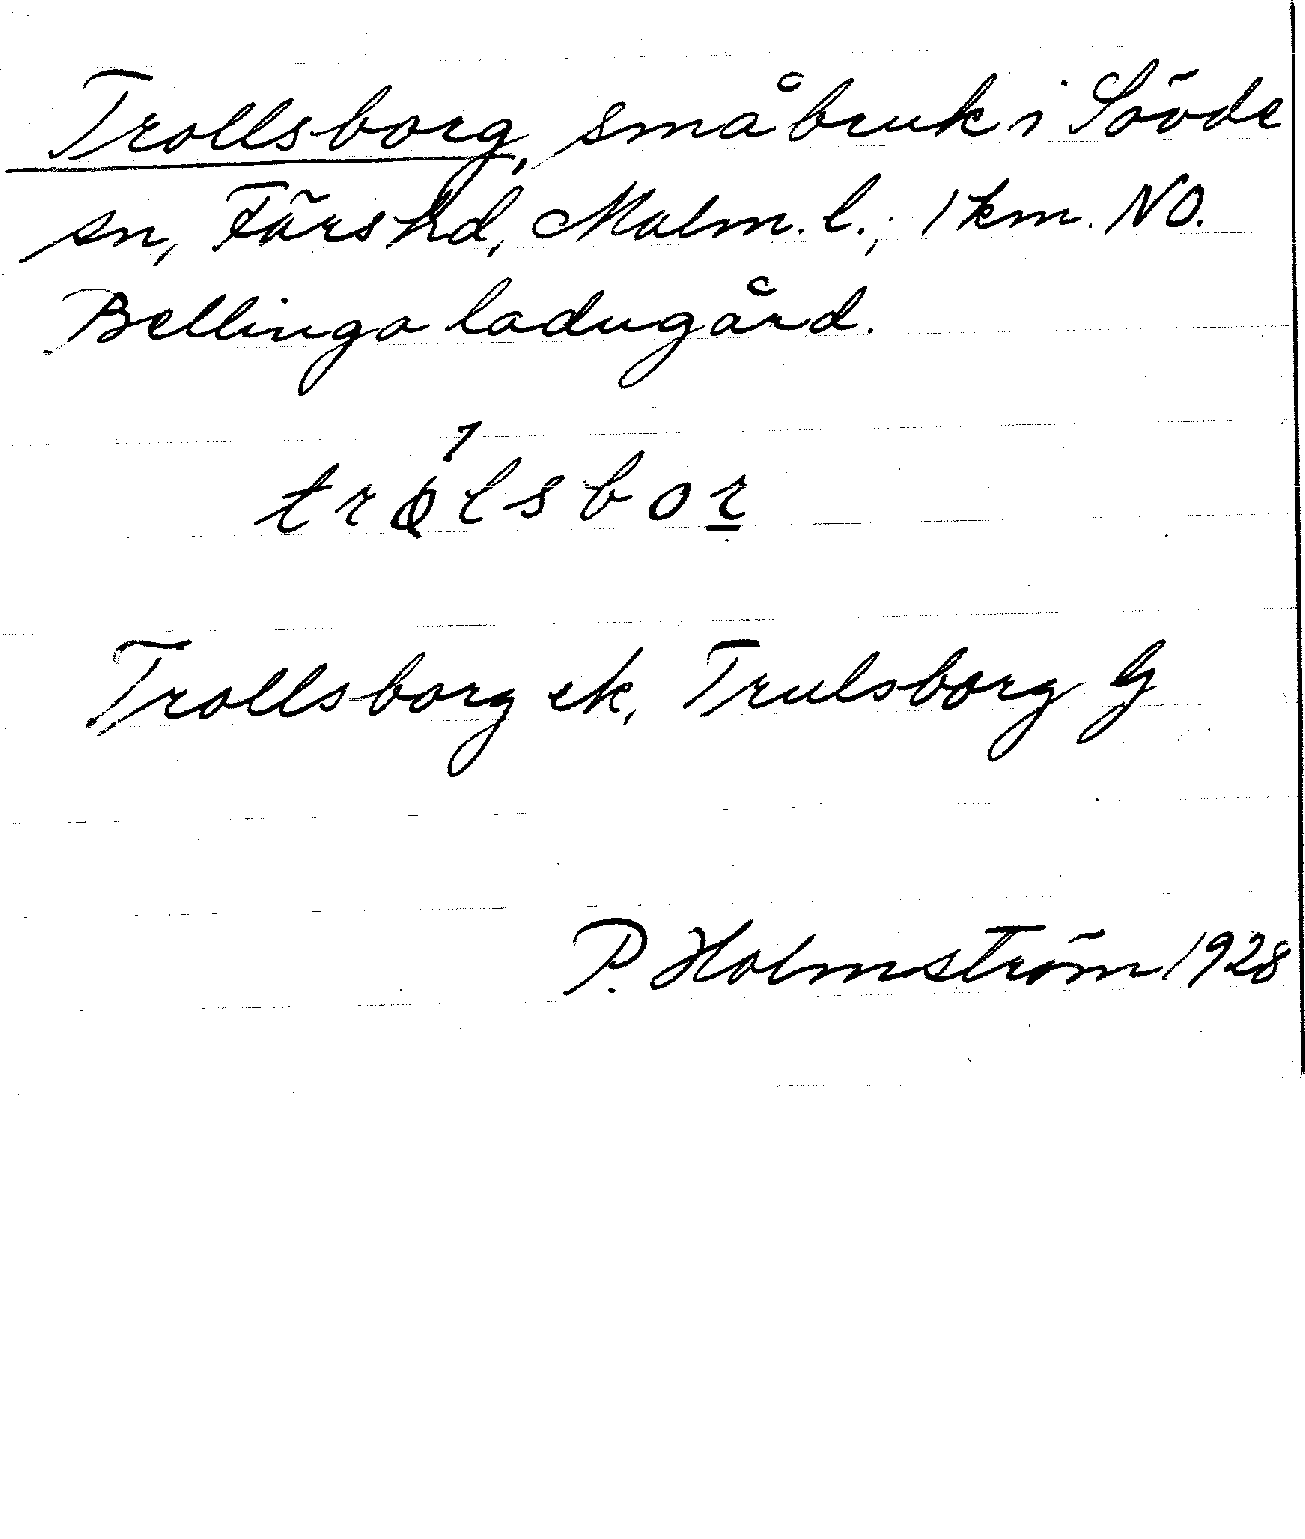 Trollsborg, småbruk i Sövde
sn, Färs hd, Malm. l.; 1 km. NO.
Bellinga ladugård.
trolsbor
Trollsborg ek, Trulsborg G
P. Holmström 1928